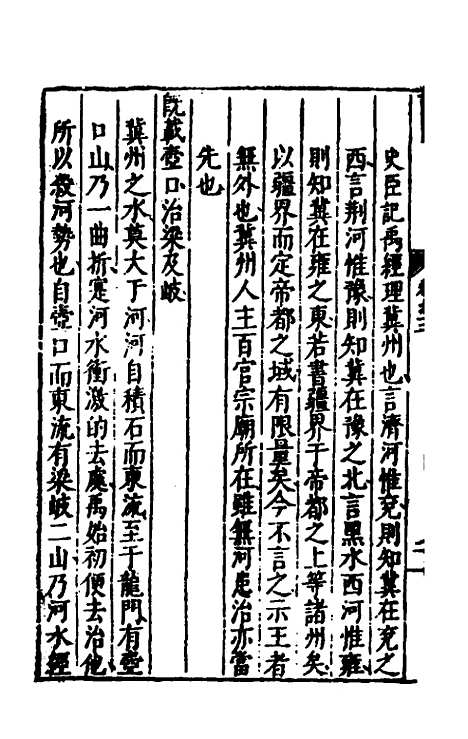 史臣記禹經理冀州也言濟河惟兗則知冀在兗之
西言荆河惟豫則知冀在豫之北言黑水西河惟雍
則知冀在雍之東若書疆界于帝都之上等諸州矣
以疆界而定帝都之域有限量矣今不言之示王者
無外也冀州人主百官宗廟所在雖無河患治亦當
先也
既載壺口治梁及岐
冀州之水莫大于河河自積石而東流至于龍門有壺
口山乃一曲折寔河水衝激的去處禹始初便去治他
所以殺河勢也自壺口而東流有梁岐二山乃河水經